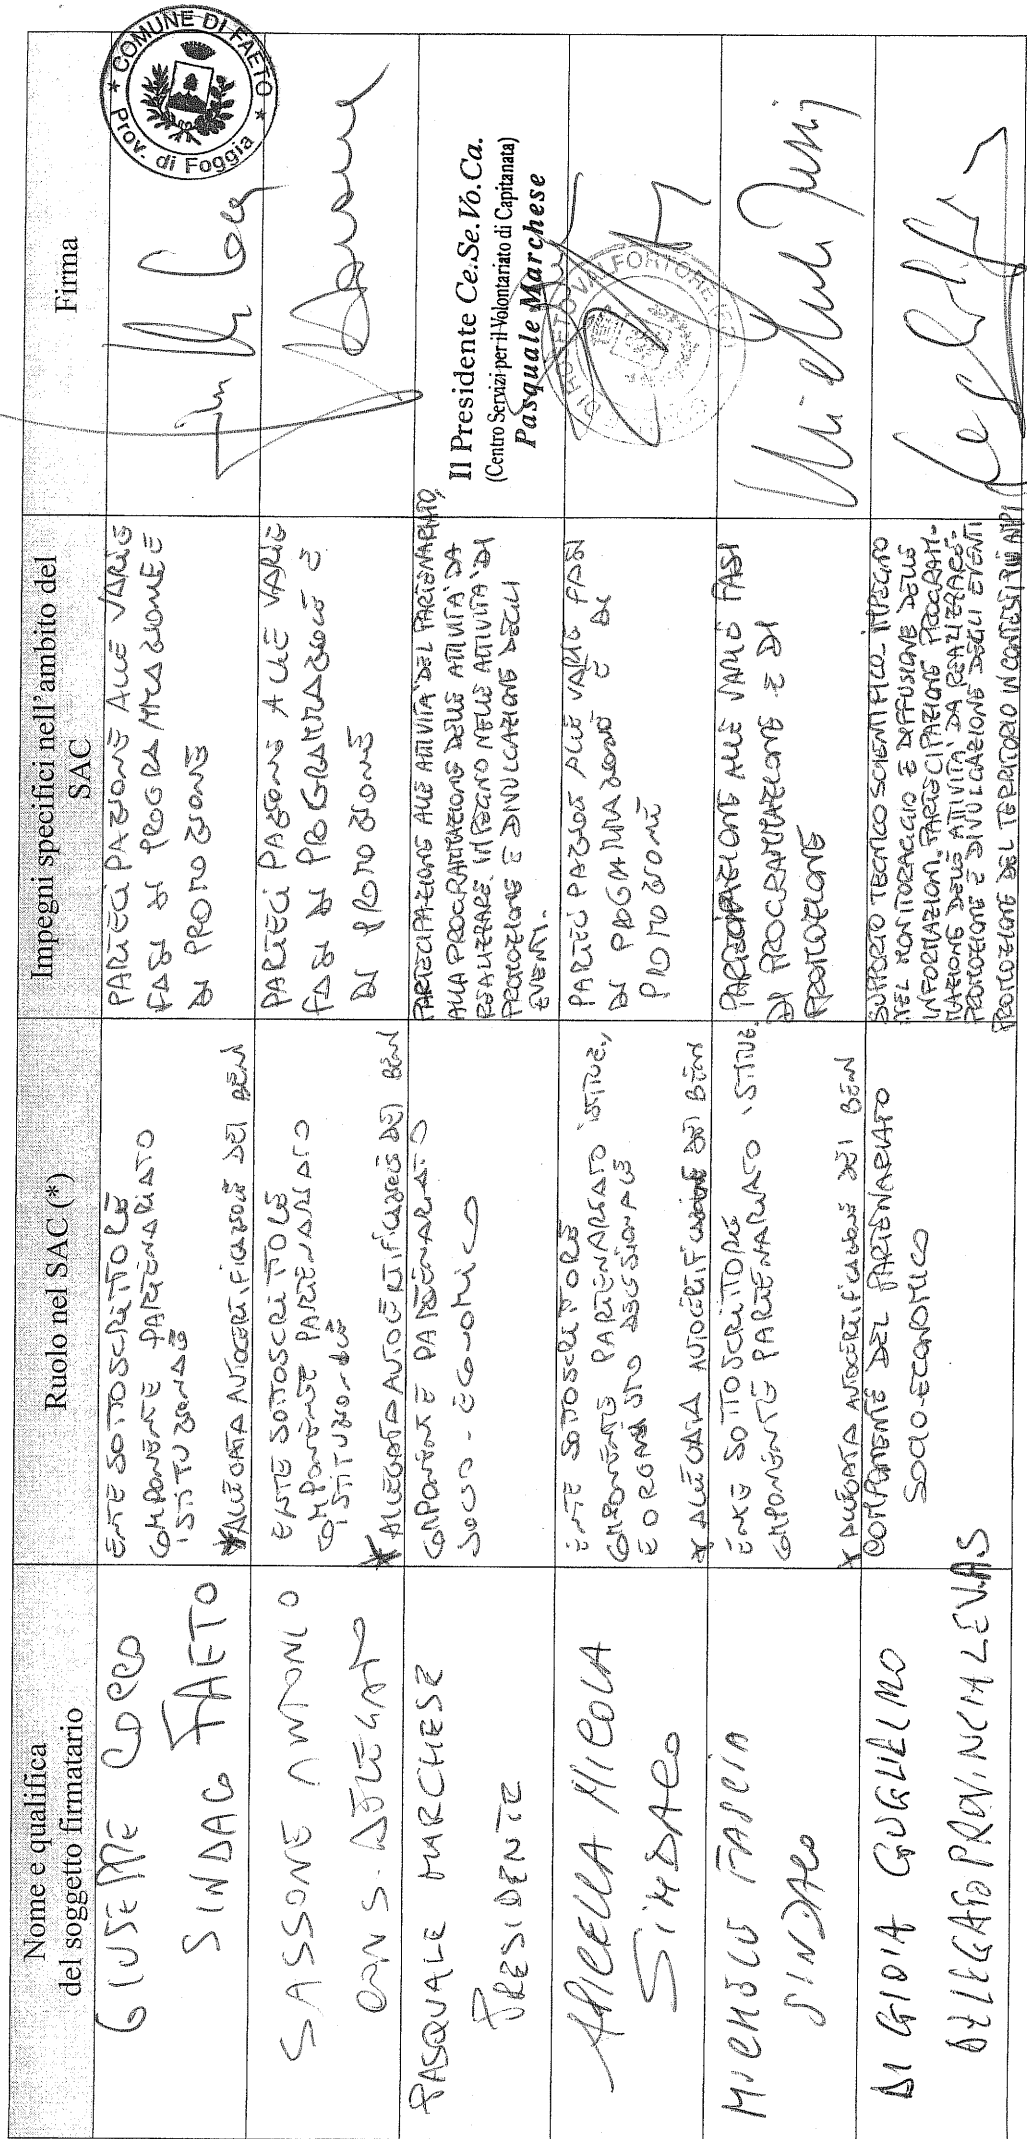 Nome e qualifica
del soggetto firmatario
Ruolo nel SAC (*)
Impegni specifici nell'ambito del
SAC
Firma
GIUSEPPE COCCO
SINDACO FAETO
ENTE SOTTOSCRITTORE
COMPONENTE PARTENARIATO
ISTITUZIONALE
*ALLEGATA AUTOCERTIFICAZIONE DEI BENI
PARTECIPAZIONE ALLE VARIE
FASI DI PROGRAMMAZIONE E
DI PROMOZIONE
COMUNE DI FAETO
Prov. di Foggia
SASSONE ANTONIO
CONS. DELEGATO
ENTE SOTTOSCRITTORE
COMPONENTE PARTENARIATO
ISTITUZIONALE
* ALLEGATA AUTOCERTIFICAZIONE DEI BENI
PARTECIPAZIONE ALLE VARIE
FASI DI PROGRAMMAZIONE E
DI PROMOZIONE
PASQUALE MARCHESE
PRESIDENTE
COMPONENTE PARTENARIATO
SOCIO-ECONOMICO
PARTECIPAZIONE ALLE ATTIVITA' DEL PARTENARIATO,
ALLA PROGRAMMAZIONE DELLE ATTIVITA' DA
REALIZZARE. IMPEGNO NELLE ATTIVITA' DI
PROMOZIONE E DIVULGAZIONE DEGLI
EVENTI.
Il Presidente Ce.Se.Vo.Ca.
(Centro Servizi per il Volontariato di Capitanata)
Pasquale Marchese
APICELLA NICOLA
SINDACO
ENTE SOTTOSCRITTORE
COMPONENTE PARTENARIATO ISTITUZ.,
E ORGANISMO DECISIONALE
* ALLEGATA AUTOCERTIFICAZIONE DEI BENI
PARTECIPAZIONE ALLE VARIE FASI
DI PROGRAMMAZIONE E DI
PROMOZIONE
VALFORTORE
MICHELE
SINDACO
ENTE SOTTOSCRITTORE
COMPONENTE PARTENARIATO ISTITUZ.
* ALLEGATA AUTOCERTIFICAZIONE DEI BENI
PARTECIPAZIONE ALLE VARIE FASI
DI PROGRAMMAZIONE E DI
PROMOZIONE
DI GIOIA GUGLIELMO
DELEGATO PROVINCIALE V.A.S
COMPONENTE DEL PARTENARIATO
SOCIO-ECONOMICO
SUPPORTO TECNICO SCIENTIFICO. IMPEGNO
NEL MONITORAGGIO E DIFFUSIONE DELLE
INFORMAZIONI. PARTECIPAZIONE PROGRAM-
MAZIONE DELLE ATTIVITA' DA REALIZZARE.
PROMOZIONE E DIVULGAZIONE DEGLI EVENTI
PROMOZIONE DEL TERRITORIO IN CONTESTI PIÙ AMPI